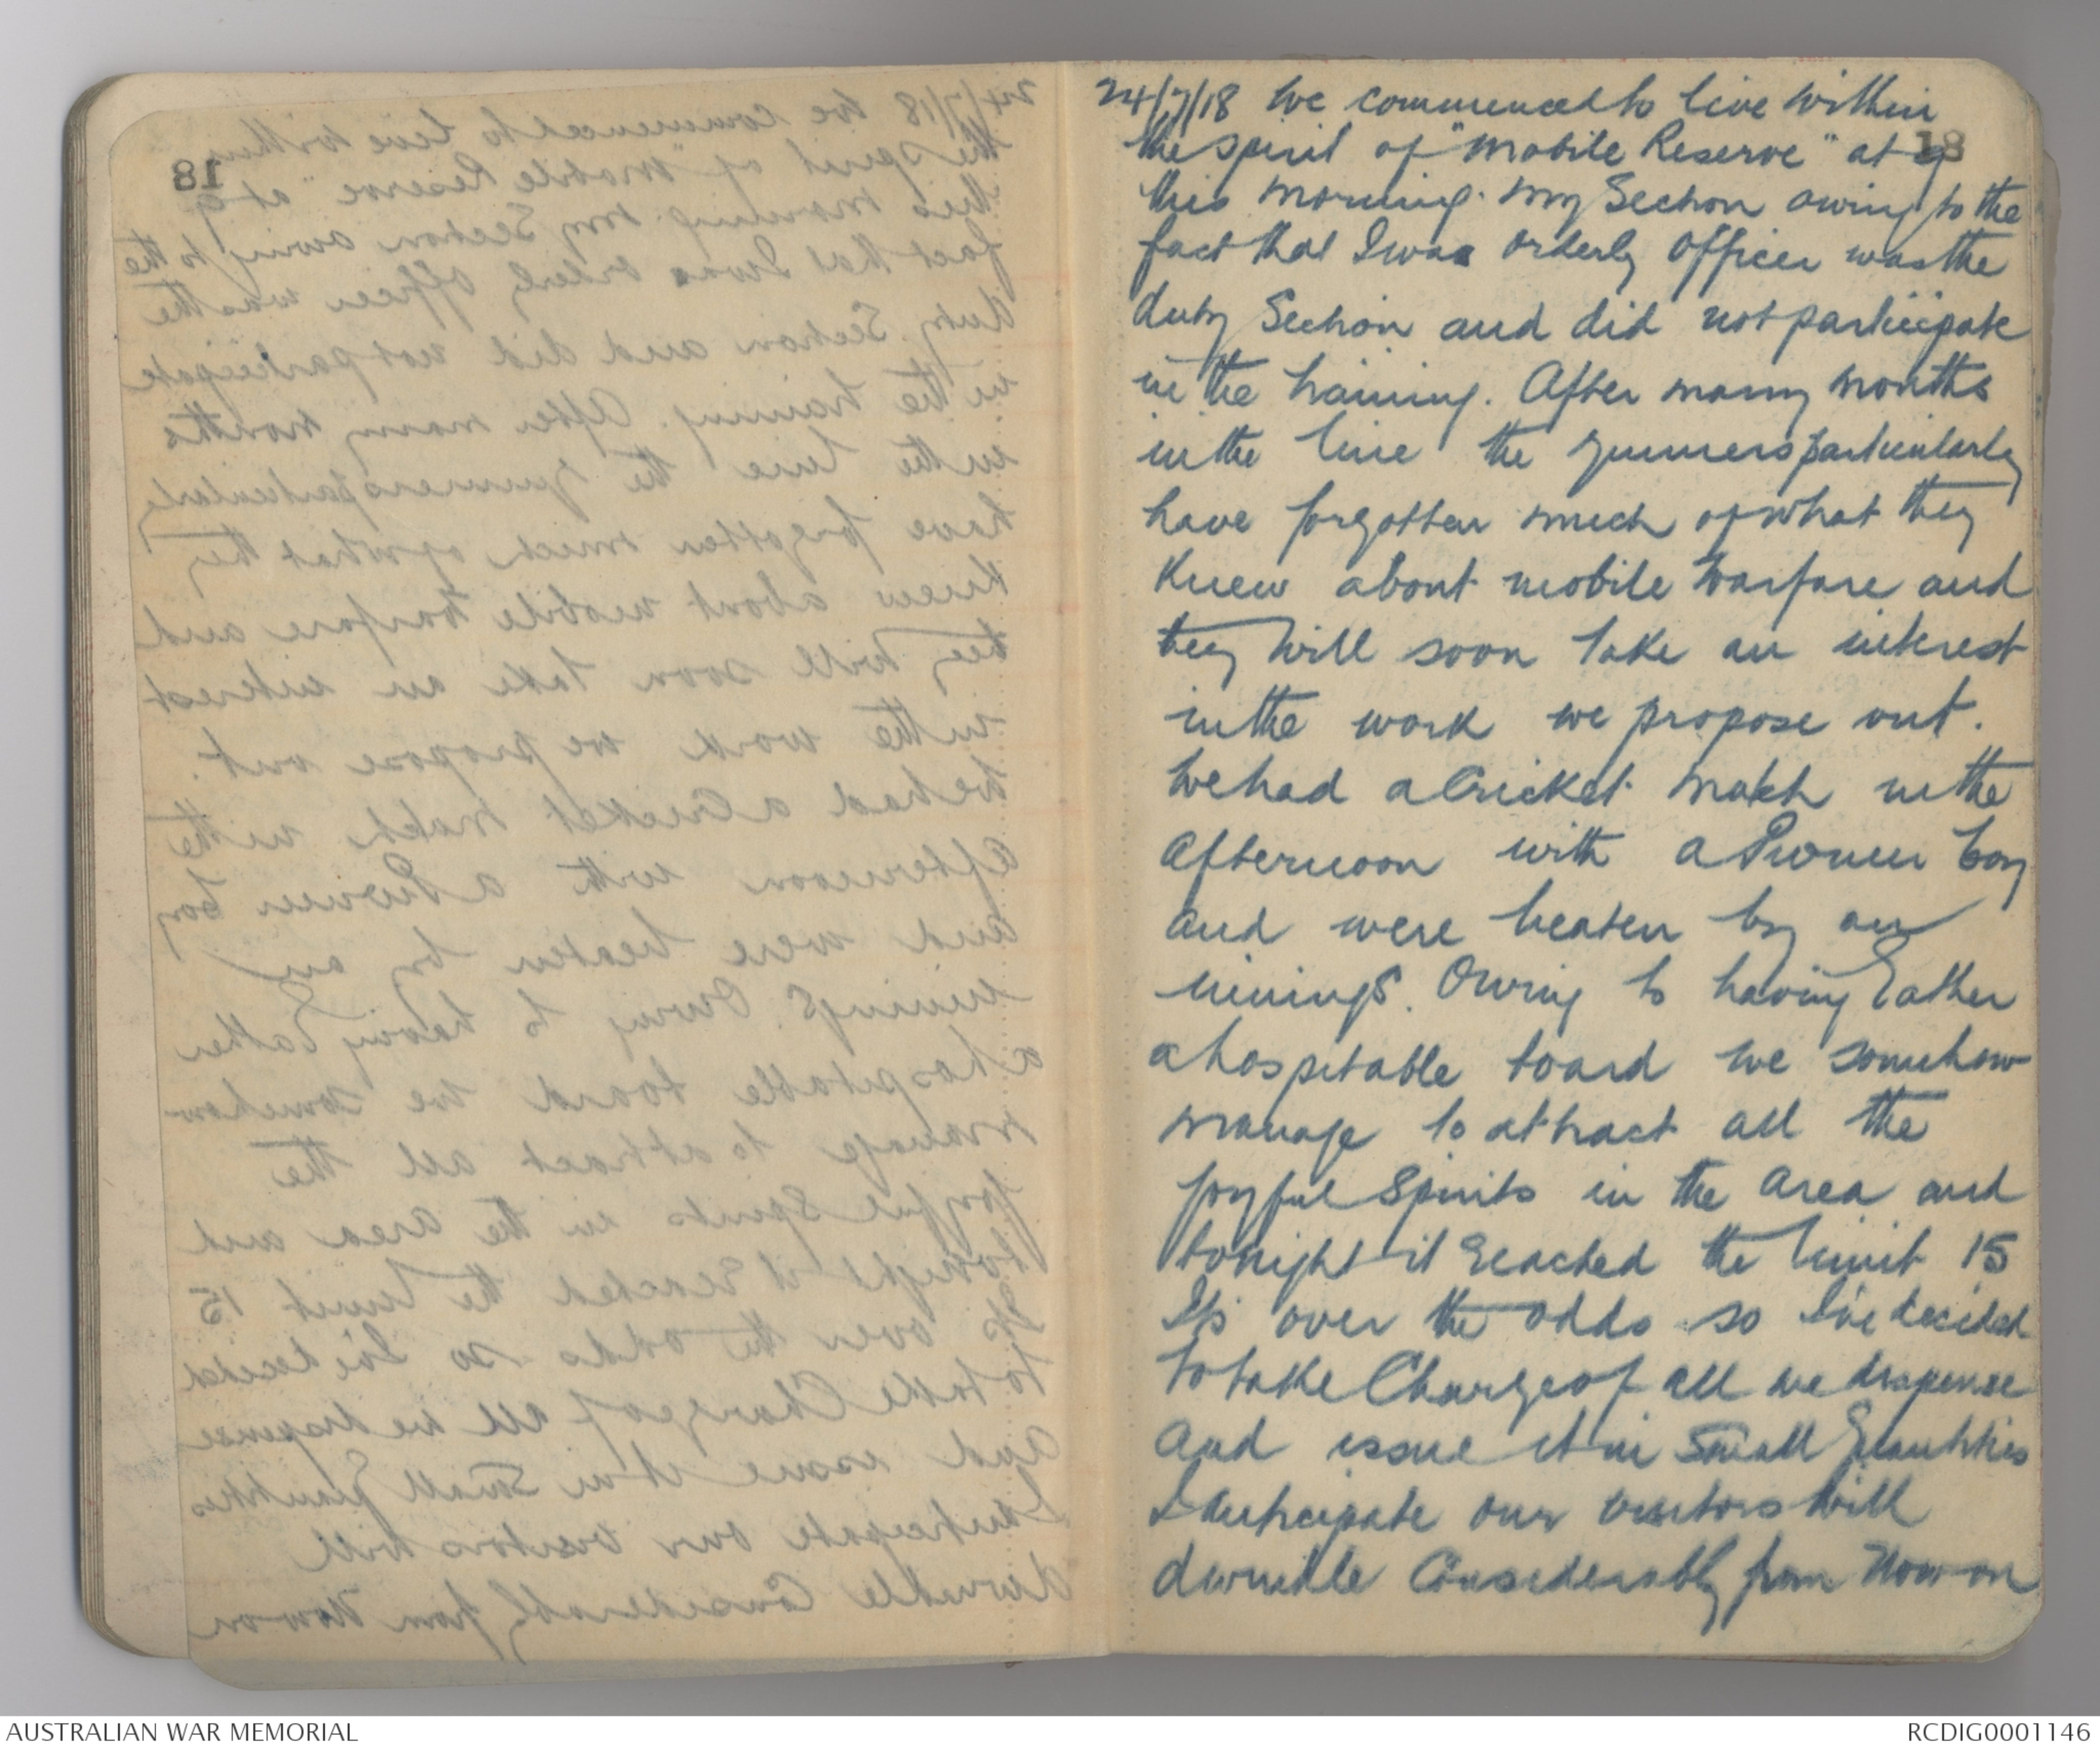 18
24/7/18 We commenced to live within
the spirit of "Mobile Reserve" at 9
this morning. My Section owing to the
fact that I was orderly officer was the
duty Section and did not participate
in the training. After many months
in the line the gunners particularly
have forgotten much of what they
knew about mobile warfare and
they will soon take an interest
in the work we propose out.
We had a Cricket match in the
afternoon with a Pioneer Coy
and were beaten by an
innings. Owing to having rather
a hospitable board we somehow
manage to attract all the
joyful spirits in the area and
tonight it reached the limit 15
It's over the odds so I've decided
to take Charge of all we dispense
and issue it in small quantities
I anticipate our visitors will
dwindle considerably from now on
AUSTRALIAN WAR MEMORIAL
RCDIG0001146